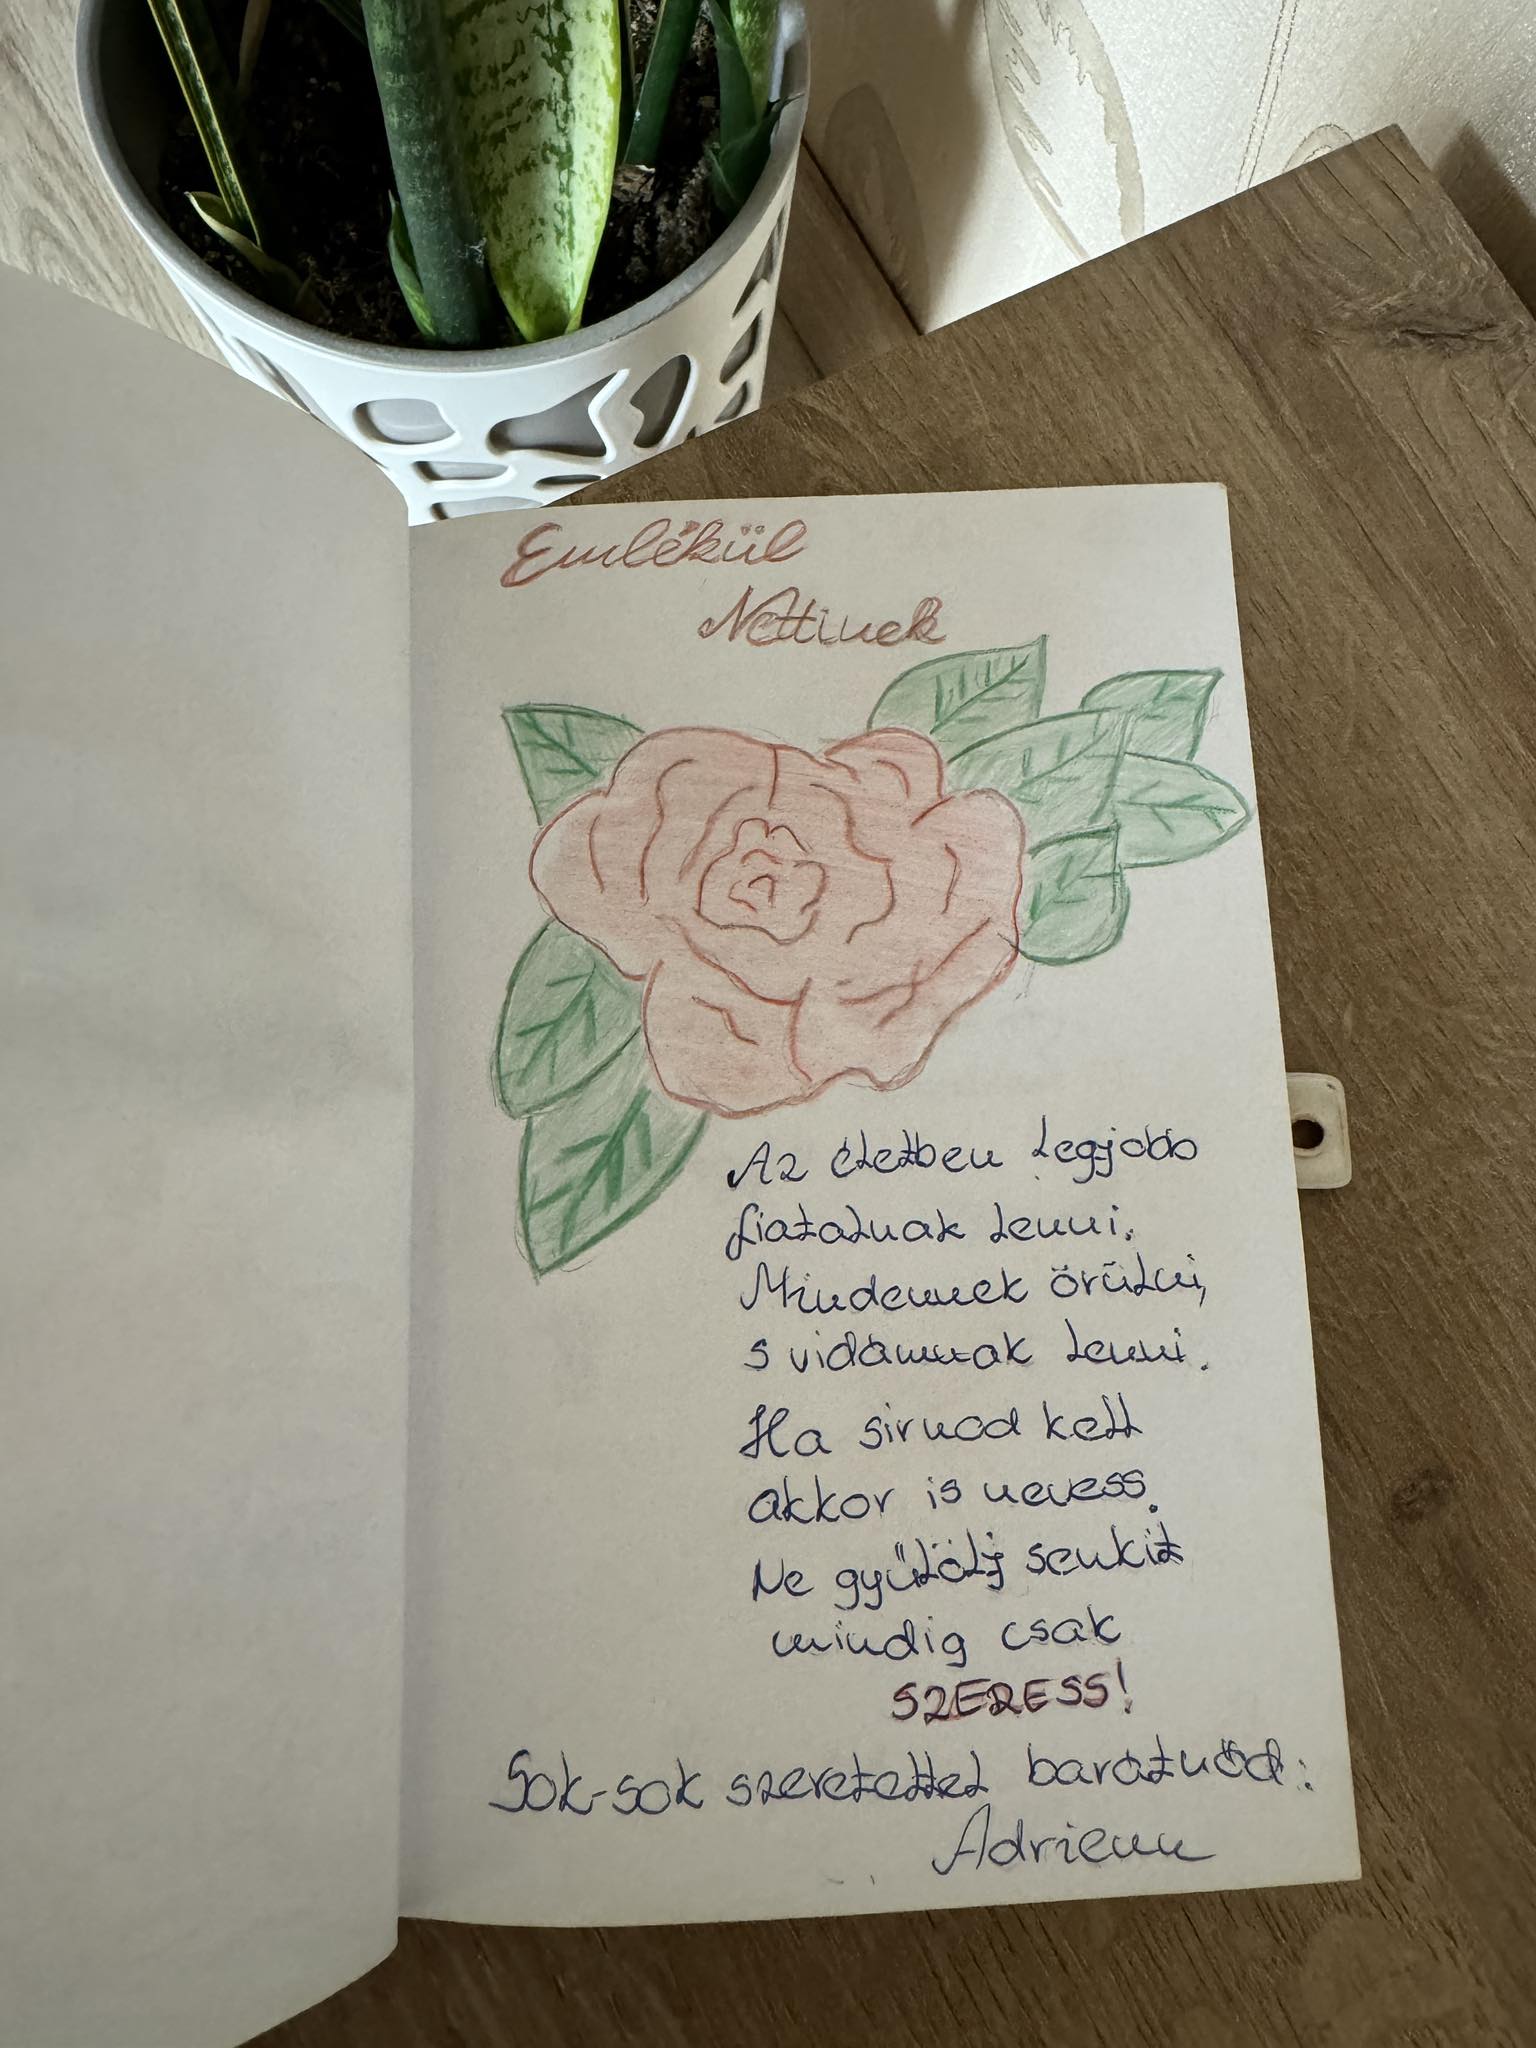 Emlékül
Nettinek
Az életben legjobb
fiatalnak lenni.
Mindennek örülni,
s vidámnak lenni.
Ha sirnod kell
akkor is nevess.
Ne gyűlölj senkit
mindig csak
SZERESS!
Sok-sok szeretettel barátnőd:
Adrienn